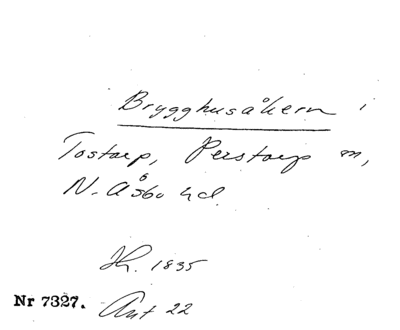 Brygghusåkern i
Tostarp, Perstorp sn,
N. Åsbo hd.
Hr. 1835
Nr 7327. Ant 22